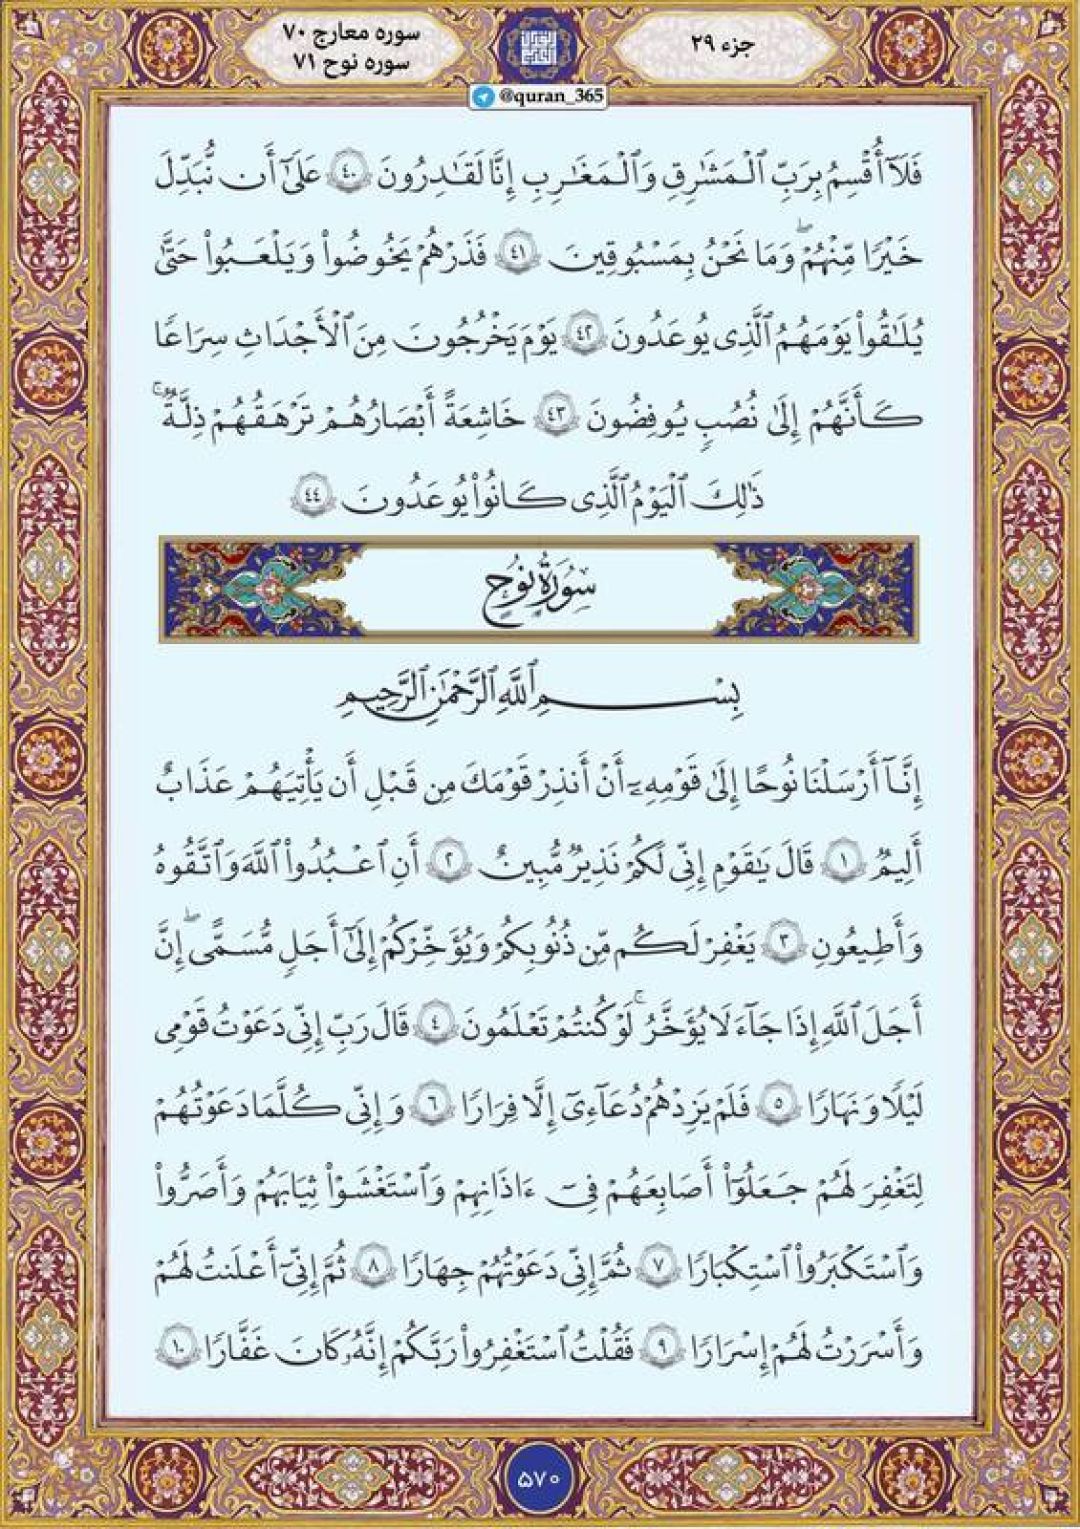 جزء ۲۹
سوره معارج ۷۰
سوره نوح ۷۱
@quran_365
فَلَآ أُقْسِمُ بِرَبِّ ٱلْمَشَٰرِقِ وَٱلْمَغَٰرِبِ إِنَّا لَقَٰدِرُونَ ٤٠ عَلَىٰٓ أَن نُّبَدِّلَ
خَيْرًا مِّنْهُمْ ۖ وَمَا نَحْنُ بِمَسْبُوقِينَ ٤١ فَذَرْهُمْ يَخُوضُوا۟ وَيَلْعَبُوا۟ حَتَّىٰ
يُلَٰقُوا۟ يَوْمَهُمُ ٱلَّذِى يُوعَدُونَ ٤٢ يَوْمَ يَخْرُجُونَ مِنَ ٱلْأَجْدَاثِ سِرَاعًا
كَأَنَّهُمْ إِلَىٰ نُصُبٍ يُوفِضُونَ ٤٣ خَاشِعَةً أَبْصَارُهُمْ تَرْهَقُهُمْ ذِلَّةٌ ۚ
ذَٰلِكَ ٱلْيَوْمُ ٱلَّذِى كَانُوا۟ يُوعَدُونَ ٤٤
سُورَةُ نُوحٍ
بِسْمِ ٱللَّهِ ٱلرَّحْمَٰنِ ٱلرَّحِيمِ
إِنَّآ أَرْسَلْنَا نُوحًا إِلَىٰ قَوْمِهِۦٓ أَنْ أَنذِرْ قَوْمَكَ مِن قَبْلِ أَن يَأْتِيَهُمْ عَذَابٌ
أَلِيمٌ ١ قَالَ يَٰقَوْمِ إِنِّى لَكُمْ نَذِيرٌ مُّبِينٌ ٢ أَنِ ٱعْبُدُوا۟ ٱللَّهَ وَٱتَّقُوهُ
وَأَطِيعُونِ ٣ يَغْفِرْ لَكُم مِّن ذُنُوبِكُمْ وَيُؤَخِّرْكُمْ إِلَىٰٓ أَجَلٍ مُّسَمًّى ۖ إِنَّ
أَجَلَ ٱللَّهِ إِذَا جَآءَ لَا يُؤَخَّرُ ۚ لَوْ كُنتُمْ تَعْلَمُونَ ٤ قَالَ رَبِّ إِنِّى دَعَوْتُ قَوْمِى
لَيْلًا وَنَهَارًا ٥ فَلَمْ يَزِدْهُمْ دُعَآءِىٓ إِلَّا فِرَارًا ٦ وَإِنِّى كُلَّمَا دَعَوْتُهُمْ
لِتَغْفِرَ لَهُمْ جَعَلُوٓا۟ أَصَابِعَهُمْ فِىٓ ءَاذَانِهِمْ وَٱسْتَغْشَوْا۟ ثِيَابَهُمْ وَأَصَرُّوا۟
وَٱسْتَكْبَرُوا۟ ٱسْتِكْبَارًا ٧ ثُمَّ إِنِّى دَعَوْتُهُمْ جِهَارًا ٨ ثُمَّ إِنِّىٓ أَعْلَنتُ لَهُمْ
وَأَسْرَرْتُ لَهُمْ إِسْرَارًا ٩ فَقُلْتُ ٱسْتَغْفِرُوا۟ رَبَّكُمْ إِنَّهُۥ كَانَ غَفَّارًا ١٠
۵۷۰